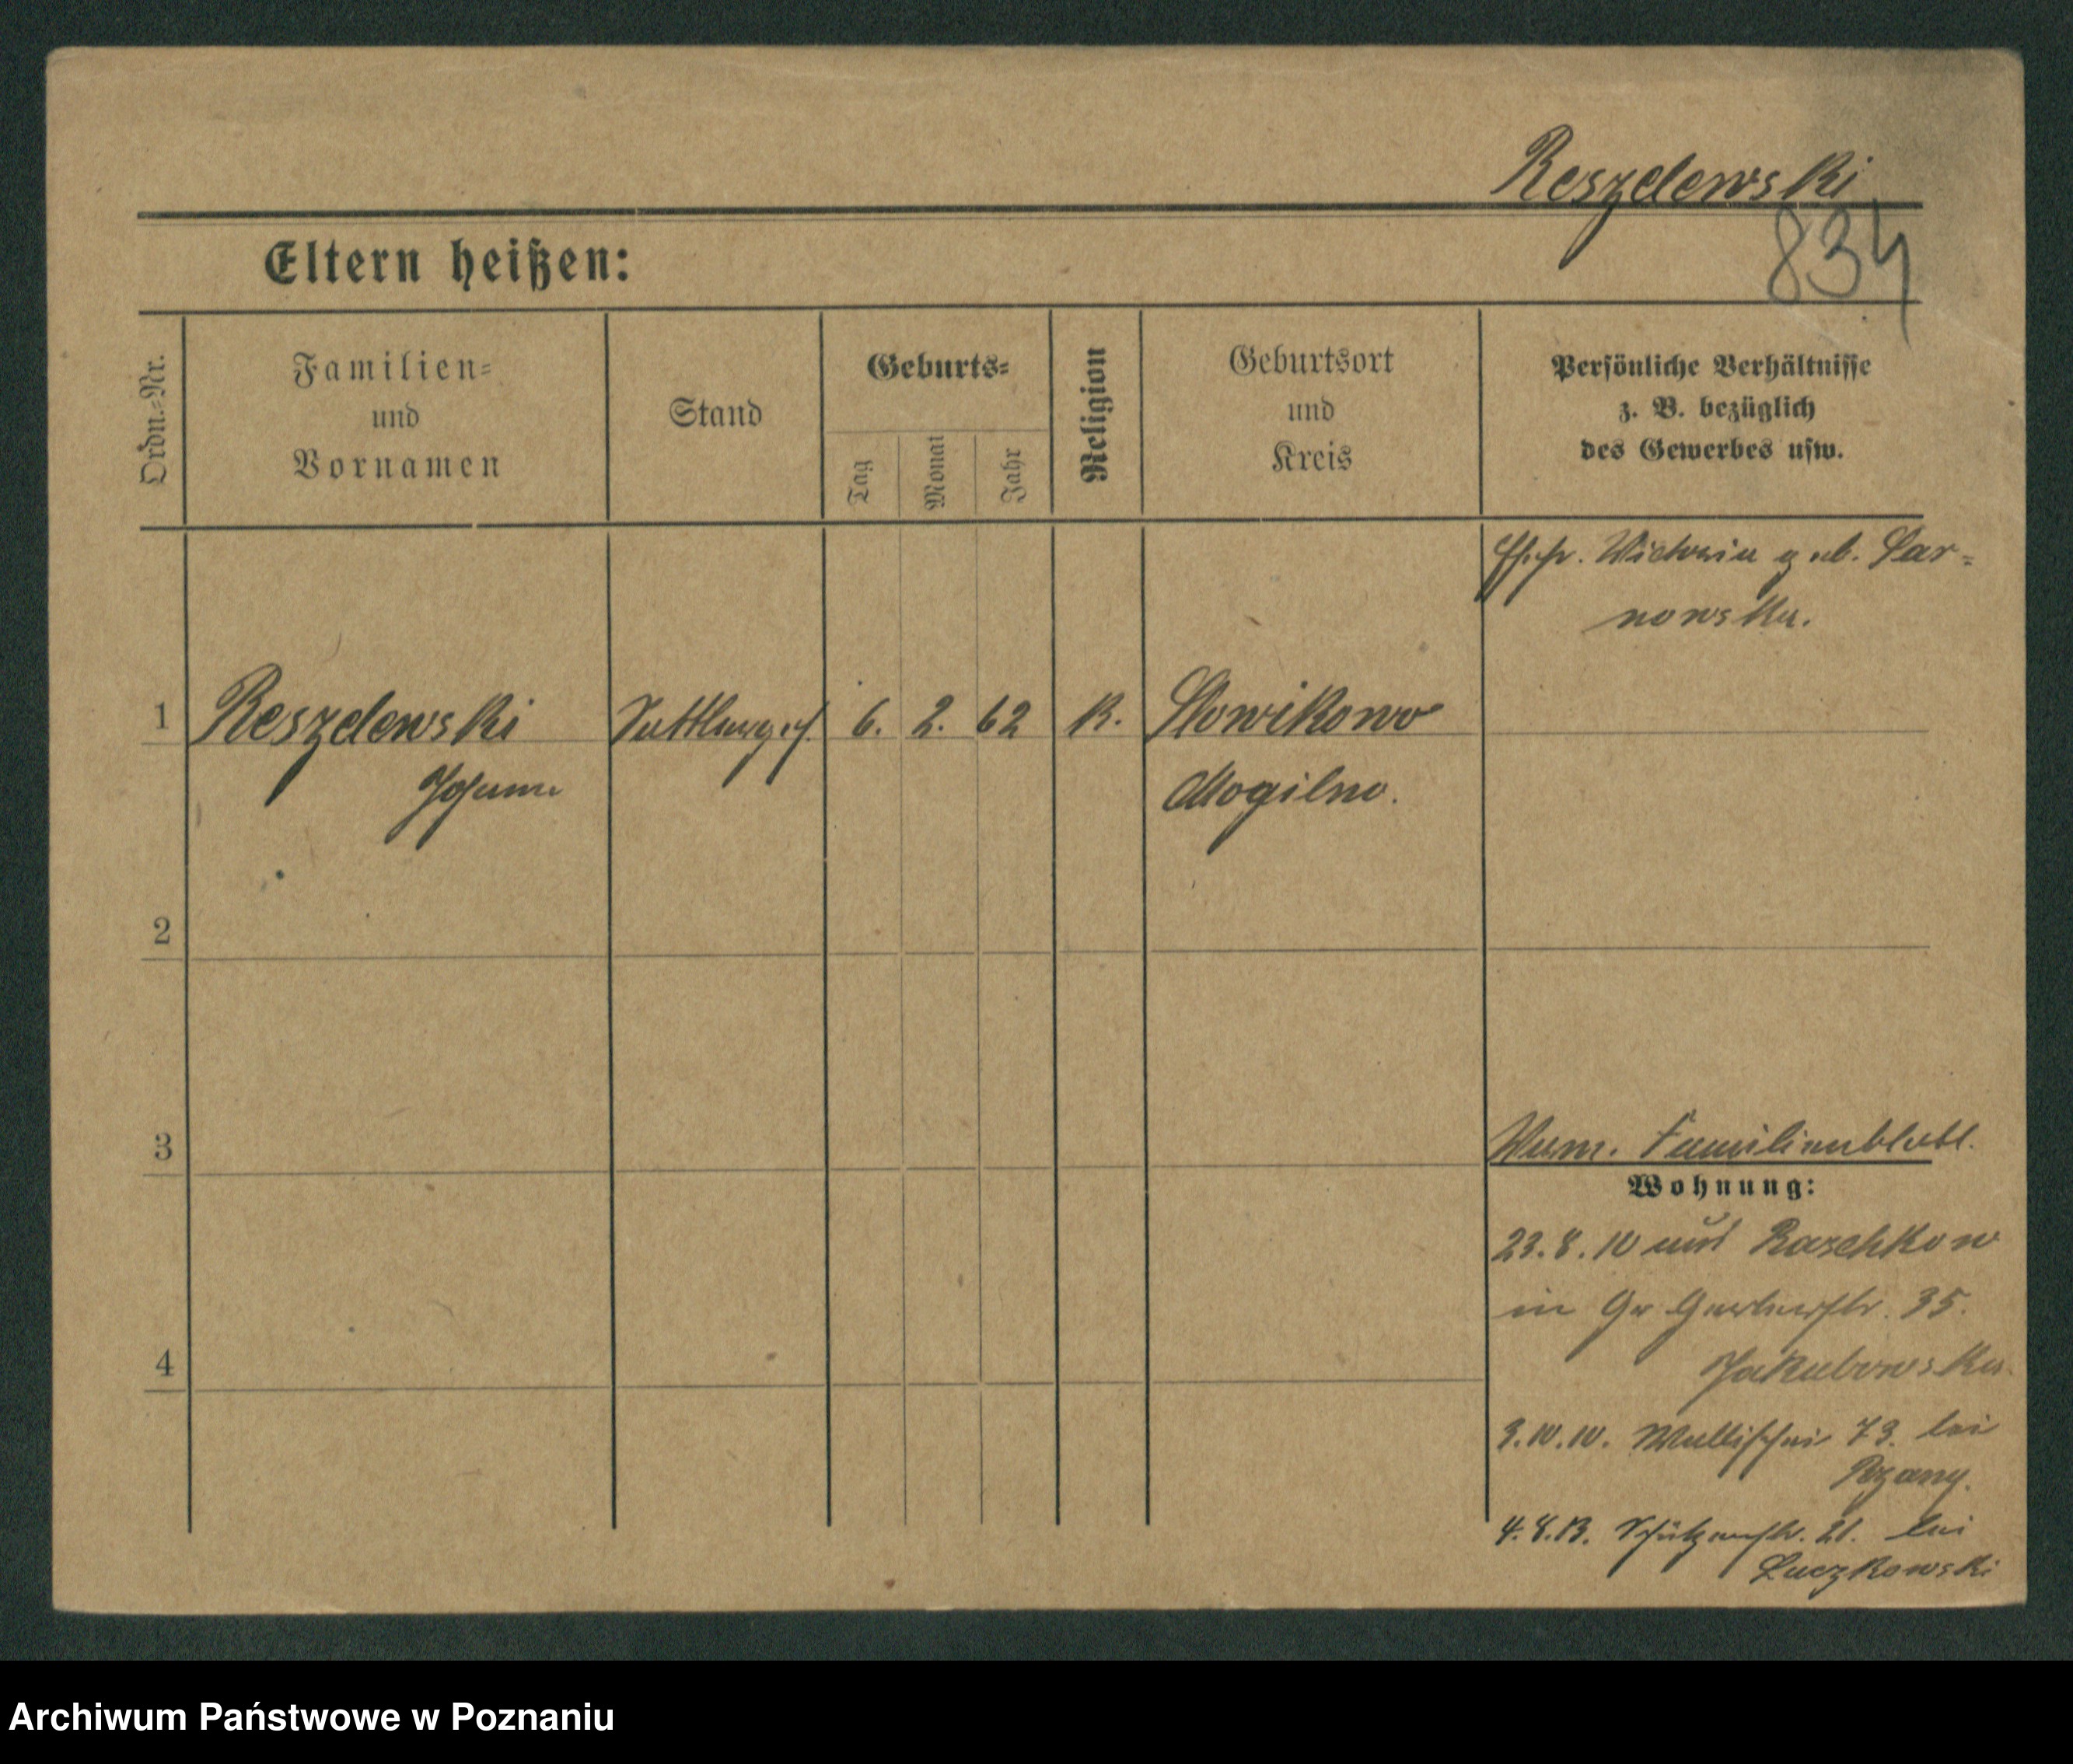 Reszelewski
834
Eltern heißen:
Ordn.=Nr.
Familien=
und
Vornamen
Stand
Geburts=
Tag
Monat
Jahr
Religion
Geburtsort
und
Kreis
Persönliche Verhältnisse
z. B. bezüglich
des Gewerbes usw.
Ehefr. Victoria geb. Sar=
nowska.
1
Reszelewski
Sattlerges.
6.
2.
62
K.
Slowikowo
Johann
Mogilno.
2
3
Familienblatt.
Wohnung:
23.8.10 aus Raschkow
in Gr Gerberstr. 35.
Jakubowska.
4
3.10.10. Wallischei 73. bei
4.8.13. Schützenstr. 21. bei
Luczkowski
Archiwum Państwowe w Poznaniu